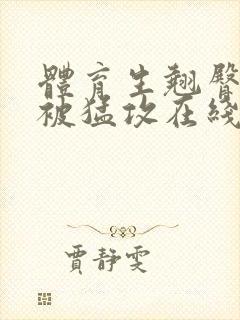 體育生翹臀
被猛攻在綫
賈靜雯